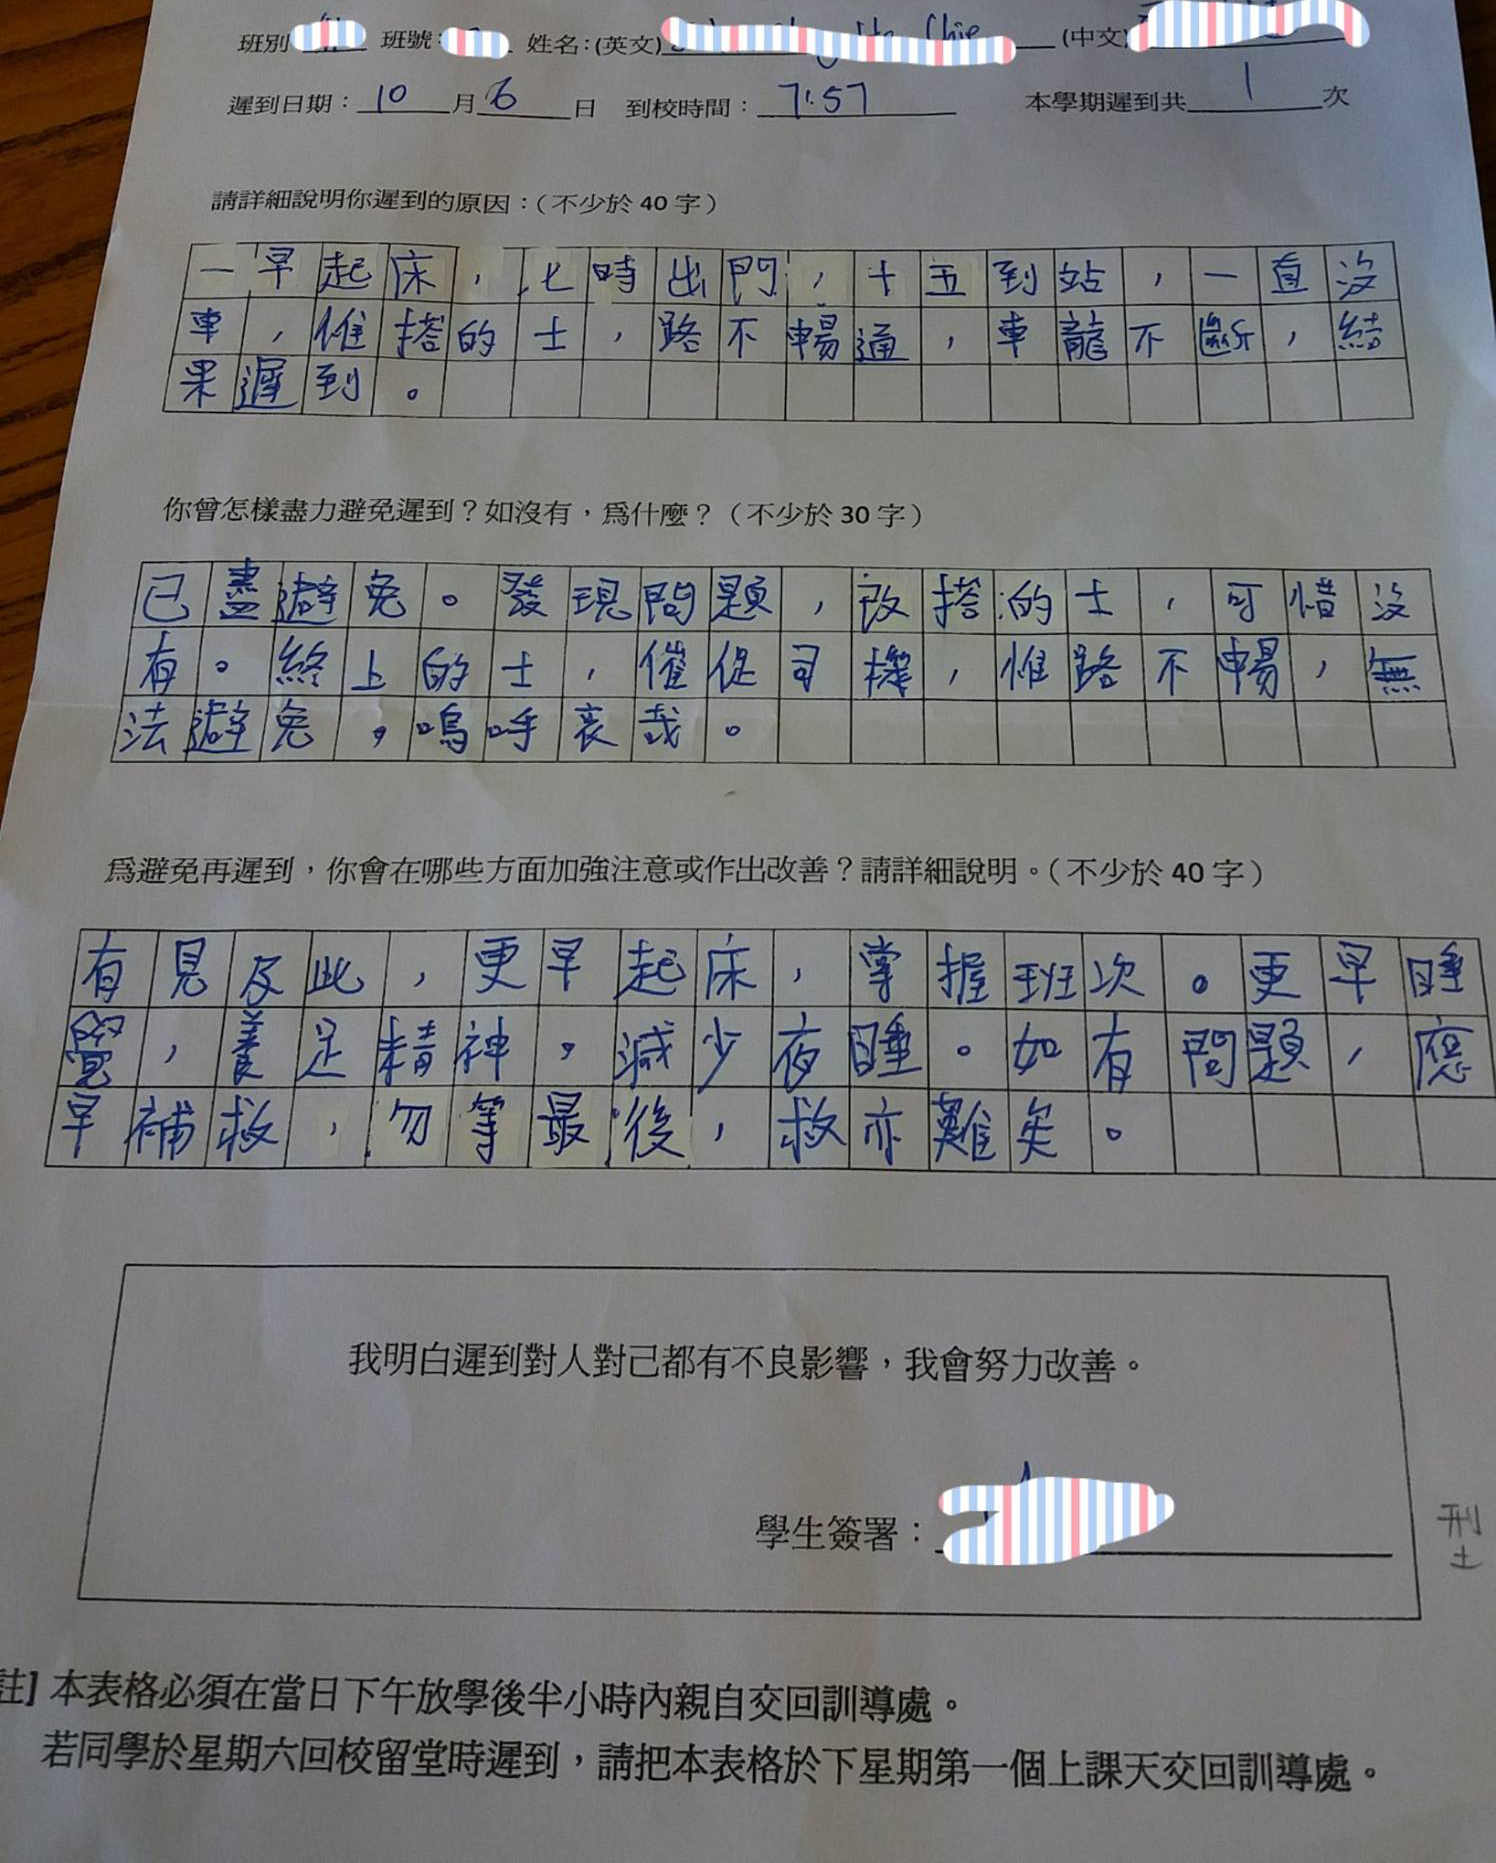 班別 班號: 姓名:(英文) (中文)
遲到日期：10月6日 到校時間：7:57 本學期遲到共1次
請詳細說明你遲到的原因：(不少於 40 字)
一早起床，七時出門，十五到站，一直沒
車，惟搭的士，路不暢通，車龍不斷，結
果遲到。
你曾怎樣盡力避免遲到？如沒有，為什麼？(不少於 30 字)
已盡避免。發現問題，改搭的士，可惜沒
有。終上的士，催促司機，惟路不暢，無
法避免，嗚呼哀哉。
為避免再遲到，你會在哪些方面加強注意或作出改善？請詳細說明。(不少於 40 字)
有見及此，更早起床，掌握班次。更早睡
覺，養足精神，減少夜睡。如有問題，應
早補救，勿等最後，救亦難矣。
我明白遲到對人對己都有不良影響，我會努力改善。
學生簽署：
註] 本表格必須在當日下午放學後半小時內親自交回訓導處。
若同學於星期六回校留堂時遲到，請把本表格於下星期第一個上課天交回訓導處。